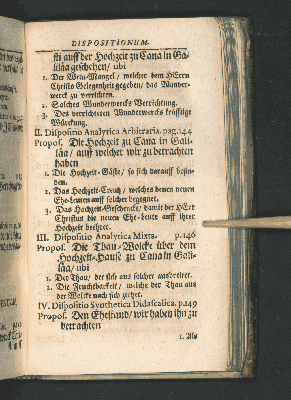 DISPOSITIONUM.
sti auff der Hochzeit zu Cana in Ga-
liläa geschehen/ ubi
1. Der Wein-Mangel/ welcher dem HErrn
Christo Gelegenheit gegeben/ das Wunder-
werck zu verrichten.
2. Solches Wunderwercks Verrichtung.
3. Des verrichteten Wunderwercks kräfftige
Würckung.
II. Dispositio Analytica Arbitraria. pag. 144
Propos. Die Hochzeit zu Cana in Gali-
läa/ auff welcher wir zu betrachten
haben
1. Die Hochzeit-Gäste/ so sich darauff befin-
den.
2. Das Hochzeit-Creutz/ welches denen neuen
Ehe-Leuten auff solcher begegnet.
3. Das Hochzeit-Geschencke/ damit der HErr
Christus die neuen Ehe-Leute auff ihrer
Hochzeit beehret.
III. Dispositio Analytica Mixta. p. 146
Propos. Die Thau-Wolcke über dem
Hochzeit-Hause zu Cana in Gali-
läa/ ubi
1. Der Thau/ der sich aus solcher ausbreitet.
2. Die Fruchtbarkeit/ welche der Thau aus
der Wolcke nach sich ziehet.
IV. Dispositio Synthetica Didascalica. p. 149
Propos. Den Ehestand/ wir haben ihn zu
betrachten
1. Als